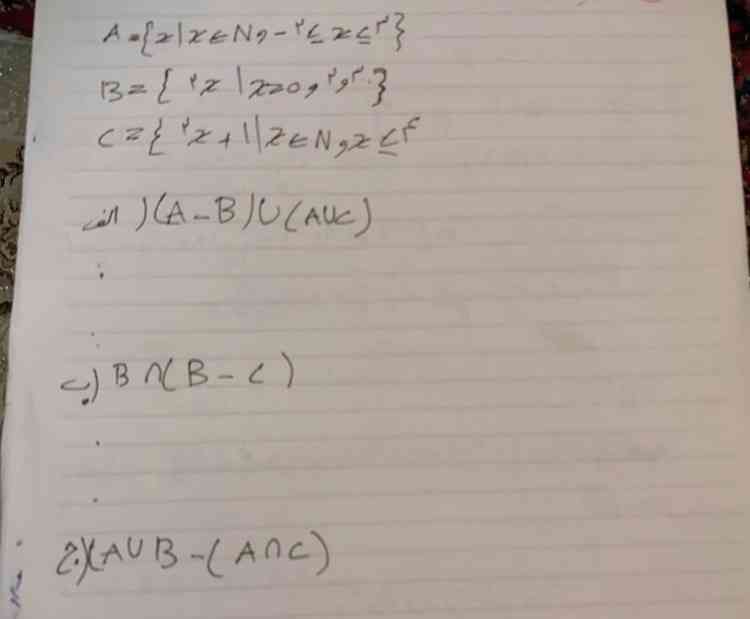 A = {x | x ∈ N و -۲ ≤ x ≤ ۳}
B = { ۲x | x=0 و ۲ و ۳ }
C = { ۲x + 1 | x ∈ N و x ≤ ۴
الف ) (A - B) ∪ (A∪C)
ب) B ∩ ( B - C )
ج) (A ∪ B - ( A ∩ C )